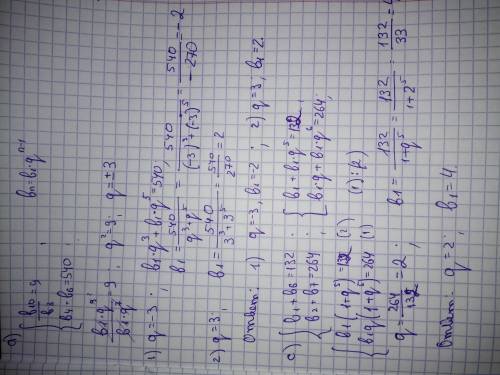 а) { b10/b8 = 9, bn = b1·q^(n-1)
{ b4 + b6 = 540;
b1·q^9 / b1·q^7 = 9; q² = 9; q = ±3
1) q = -3; b1·q³ + b1·q⁵ = 540;
b1 = 540/(q³+q⁵) = 540/((-3)³+(-3)⁵) = 540/-270 = -2
2) q = 3; b1 = 540/(3³+3⁵) = 540/270 = 2
Ответ: 1) q = -3, b1 = -2; 2) q = 3, b1 = 2.
с) { b1 + b6 = 132; { b1 + b1·q⁵ = 132,
{ b2 + b7 = 264, { b1·q + b1·q⁶ = 264,
{ b1(1+q⁵) = 132 (2)
{ b1q(1+q⁵) = 264 (1) (1):(2)
q = 264/132 = 2; b1 = 132/(1+q⁵) = 132/(1+2⁵) = 132/33 =
Ответ: q = 2, b1 = 4.